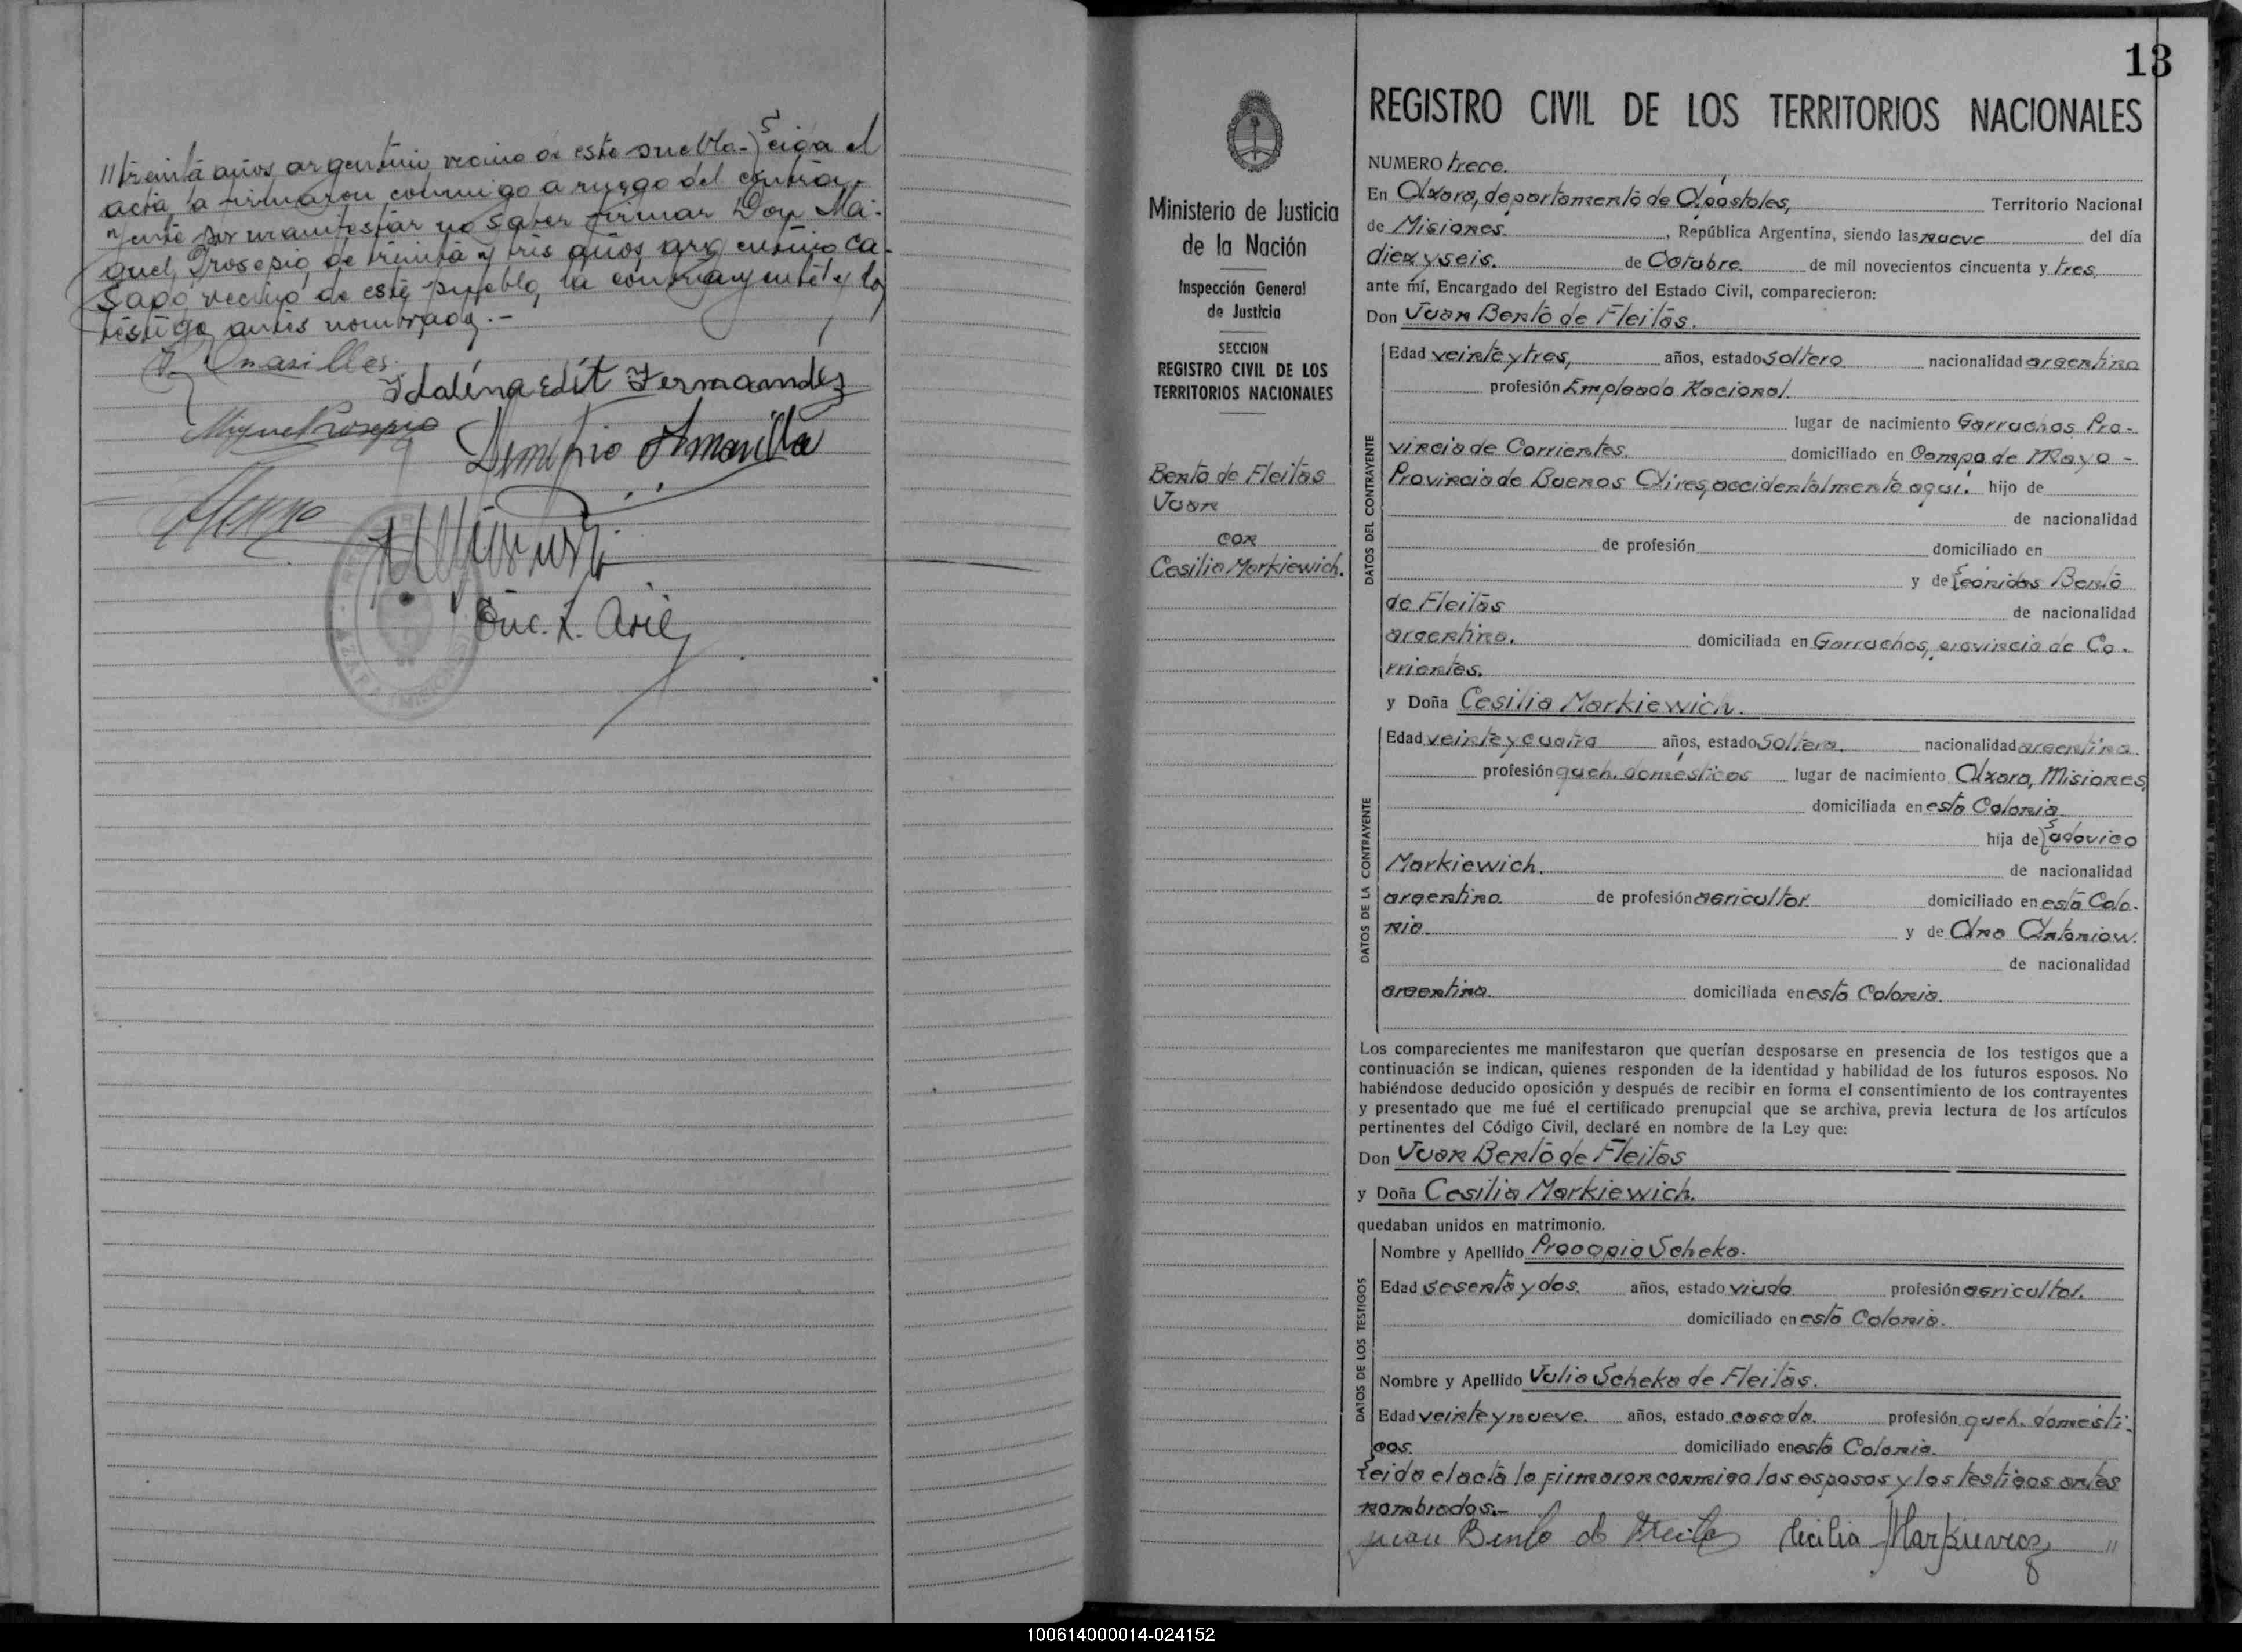 //treinta años argentino vecino de este pueblo.- Leida el
acta la firmaron conmigo a ruego del contra-
yente por manifestar no saber firmar Don Mi-
guel Prosepio de treinta y tres años argentino ca-
sado vecino de este pueblo, la contrayente y los
testigos antes nombrados.-
Idalina Edit Fernandez
Miguel Prosepio
13
REGISTRO CIVIL DE LOS TERRITORIOS NACIONALES
Ministerio de Justicia
de la Nación
Inspección General
de Justicia
SECCION
REGISTRO CIVIL DE LOS
TERRITORIOS NACIONALES
Bento de Fleitas
Juan
con
Cesilia Markiewich.
NUMERO trece.
En Azara, departamento de Apóstoles, Territorio Nacional
de Misiones. , República Argentina, siendo las nueve del día
diez y seis. de Octubre de mil novecientos cincuenta y tres,
ante mí, Encargado del Registro del Estado Civil, comparecieron:
Don Juan Bento de Fleitas.
DATOS DEL CONTRAYENTE
Edad veinte y tres, años, estado soltero nacionalidad argentina
profesión Empleado Nacional.
lugar de nacimiento Garruchos Pro-
vincia de Corrientes. domiciliado en Campo de Mayo -
Provincia de Buenos Aires, accidentalmente aquí. hijo de
de nacionalidad
de profesión domiciliado en
y de Leónidas Bento
de Fleitas de nacionalidad
argentina. domiciliada en Garruchos, provincia de Co-
rrientes.
y Doña Cesilia Markiewich.
DATOS DE LA CONTRAYENTE
Edad veinte y cuatro años, estado soltera. nacionalidad argentina.
profesión queh. domésticos lugar de nacimiento Azara, Misiones,
domiciliada en esta Colonia
hija de Ludovico
Markiewich. de nacionalidad
argentino. de profesión agricultor. domiciliado en esta Colo-
nia. y de Ana Antoniow.
de nacionalidad
argentina. domiciliada en esta Colonia.
Los comparecientes me manifestaron que querían desposarse en presencia de los testigos que a
continuación se indican, quienes responden de la identidad y habilidad de los futuros esposos. No
habiéndose deducido oposición y después de recibir en forma el consentimiento de los contrayentes
y presentado que me fué el certificado prenupcial que se archiva, previa lectura de los artículos
pertinentes del Código Civil, declaré en nombre de la Ley que:
Don Juan Bento de Fleitas
y Doña Cesilia Markiewich.
quedaban unidos en matrimonio.
DATOS DE LOS TESTIGOS
Nombre y Apellido Procopio Scheko.
Edad sesenta y dos. años, estado viudo. profesión agricultor.
domiciliado en esta Colonia.
Nombre y Apellido Julia Scheko de Fleitas.
Edad veinte y nueve. años, estado casada. profesión queh. domésti-
cos. domiciliado en esta Colonia.
Leida el acta la firmaron conmigo los esposos y los testigos antes
nombrados.-
Juan Bento de Fleitas Cecilia Markievicz //
100614000014-024152